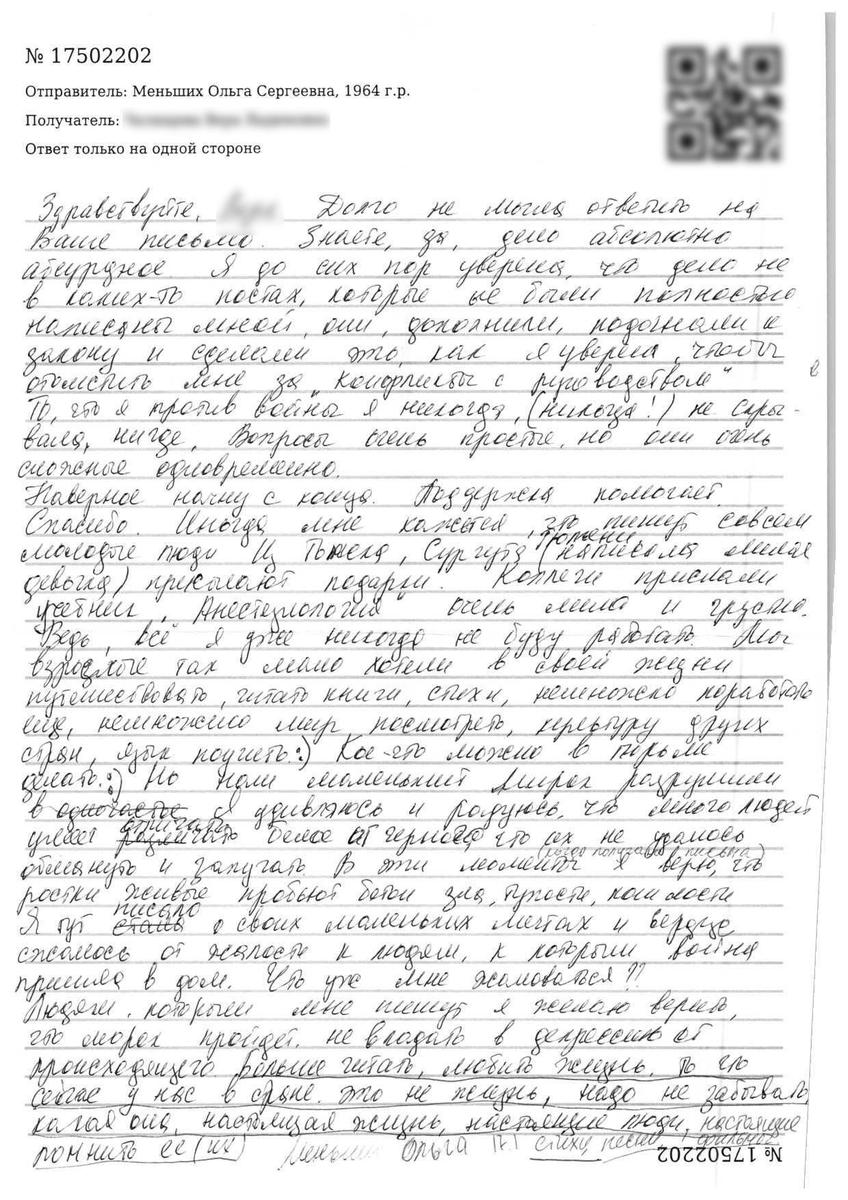 № 17502202
Отправитель: Меньших Ольга Сергеевна, 1964 г.р.
Получатель:
Ответ только на одной стороне
Здравствуйте, Долго не могла ответить на
Ваше письмо. Знаете, да, дело абсолютно
абсурдное. Я до сих пор уверена, что дело не
в каких-то постах, которые не были полностью
написаны мной, они, дополнили, подогнали к
закону и сделали это, как я уверена, чтобы
отомстить мне за "конфликты с руководством"
То, что я против войны я никогда, (никогда!) не скры-
вала, нигде, Вопросы очень простые, но они очень
сложные одновременно.
Наверное начну с конца. Поддержка помогает.
Спасибо. Иногда мне кажется, что пишут совсем
молодые люди Из Сургута, Тюмени (написала милая
девочка) присылают подарки. Коллеги прислали
учебник "Анестезиология" очень мило и грустно.
Ведь, всё я уже никогда не буду работать. Мои
взрослые так мало хотели в своей жизни
путешествовать, читать книги, стихи, немножко поработать
еще, немножко мир посмотреть, культуру других
стран, язык поучить:) Кое-что можно в тюрьме
делать:) Но наш маленький мирок разрушили
в одночасье Я удивляюсь и радуюсь, что много людей
умеет отличать белое от черного что их не удалось
обмануть и запугать В эти моменты (когда получаю письма) я верю, что
ростки живые пробьют бетон зла, тупости, пошлости
Я тут писала о своих маленьких мечтах и сердце
сжалось от жалости к людям, к которым война
пришла в дом. Что уж мне жаловаться??
Людям, которые мне пишут я желаю верить,
что морок пройдет, не впадать в депрессию от
происходящего больше читать, любить жизнь. То что
сейчас у нас в стране это не жизнь, надо не забывать
какая она, настоящая жизнь, настоящие люди, настоящие
стихи, песни, фильмы
помнить ее (их)
Меньших Ольга
№ 17502202